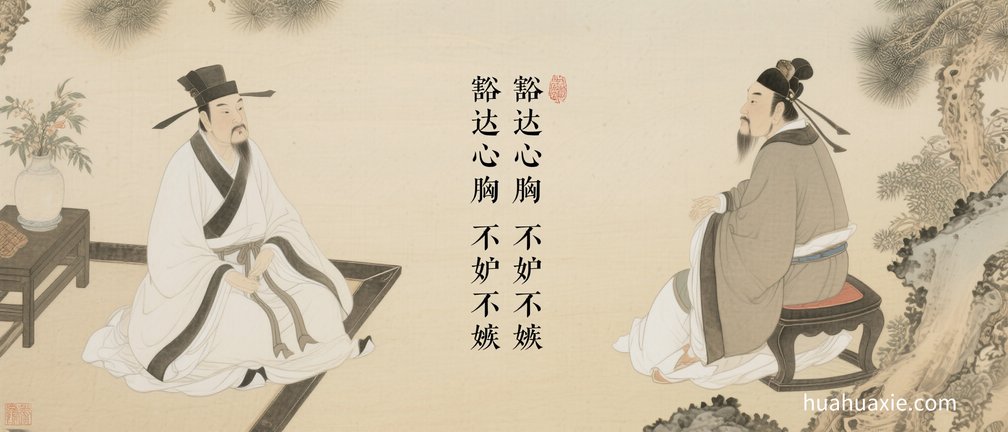 豁达心胸 不妒不嫉
豁达心胸 不妒不嫉
huahuaxie.com